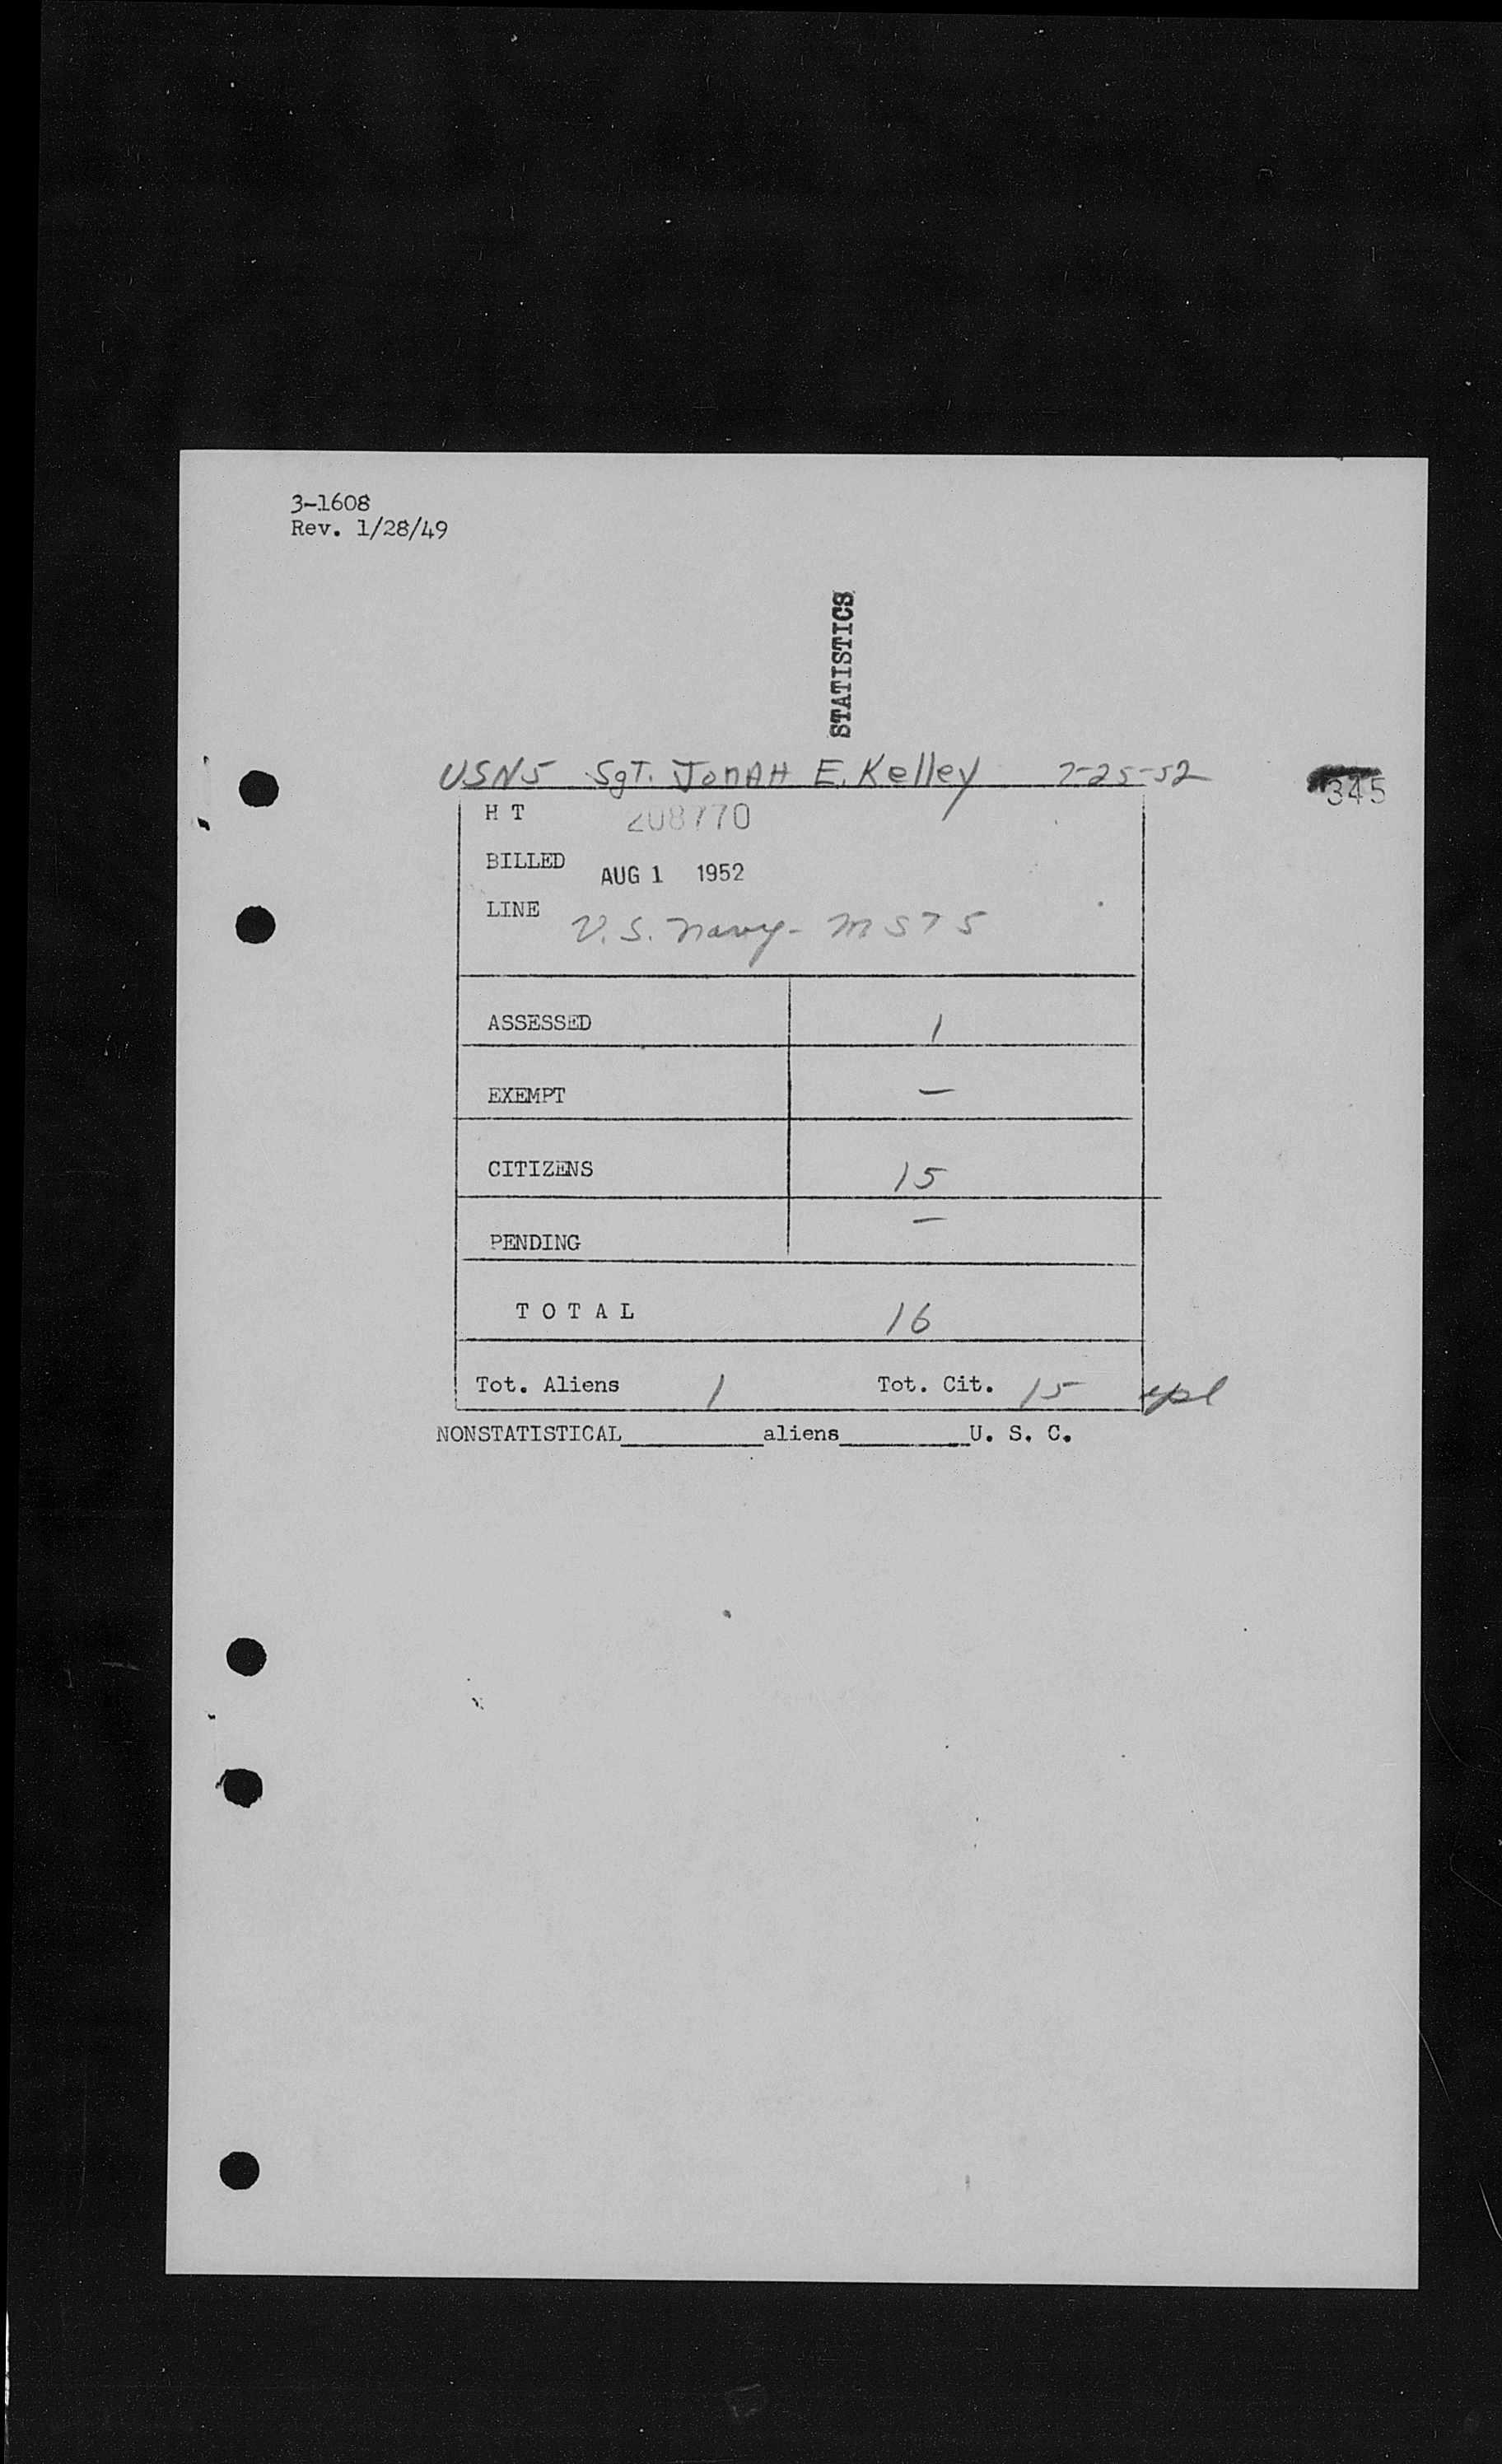 3-1608
Rev. 1/28/49
STATISTICS
USNS Sgt. Jonah E. Kelley 7-25-52
345
H T 208770
BILLED AUG 1 1952
LINE U.S. Navy - MSTS
ASSESSED 1
EXEMPT —
CITIZENS 15
PENDING —
T O T A L 16
Tot. Aliens 1 Tot. Cit. 15
NONSTATISTICAL__________aliens__________U. S. C.